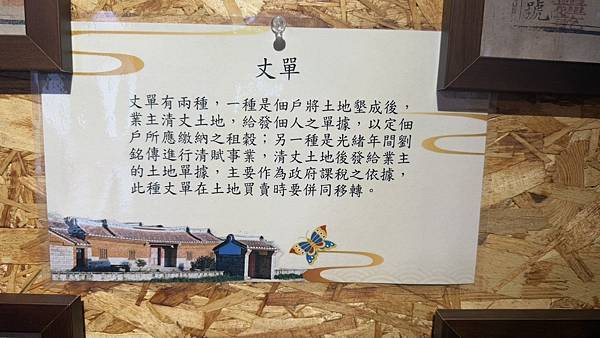 丈單
丈單有兩種，一種是佃戶將土地墾成後，
業主清丈土地，給發佃人之單據，以定佃
戶所應繳納之租穀；另一種是光緒年間劉
銘傳進行清賦事業，清丈土地後發給業主
的土地單據，主要作為政府課稅之依據，
此種丈單在土地買賣時要併同移轉。
號